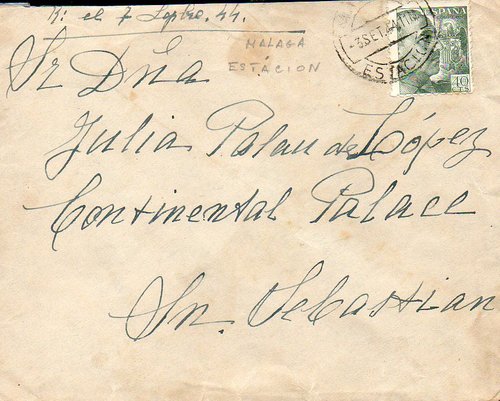 R: el 7 Sepbre. 44.
MALAGA
ESTACION
-3 SET. 44
ESTACION
ESPAÑA
40
CTS
Sr Dña
Julia Palau de López
Continental Palace
Sn. Sebastian